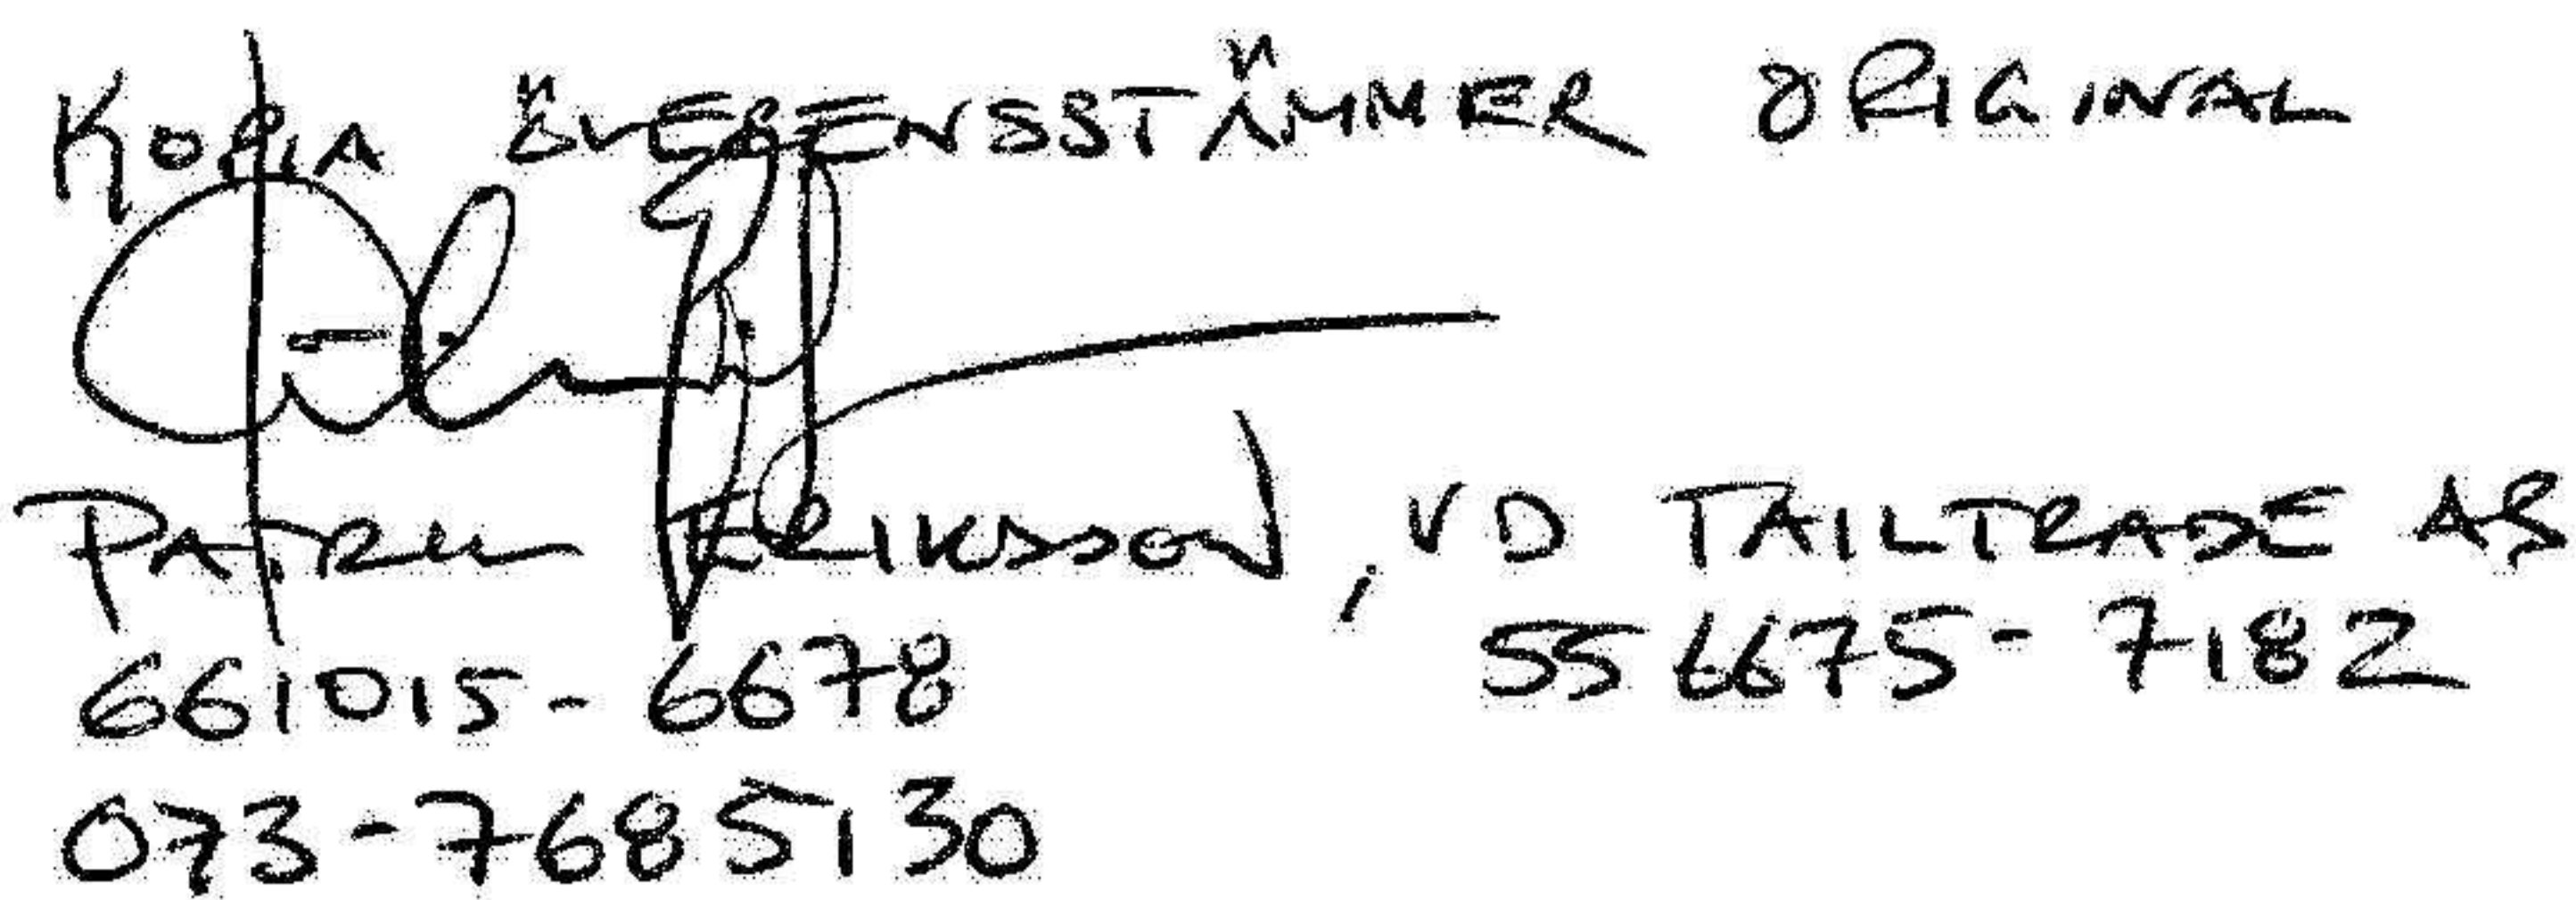 KOPIA ÖVERENSSTÄMMER ORIGINAL
PATRIK ERIKSSON, VD TAILTRADE AB
661015-6678 556675-7182
073-7685130